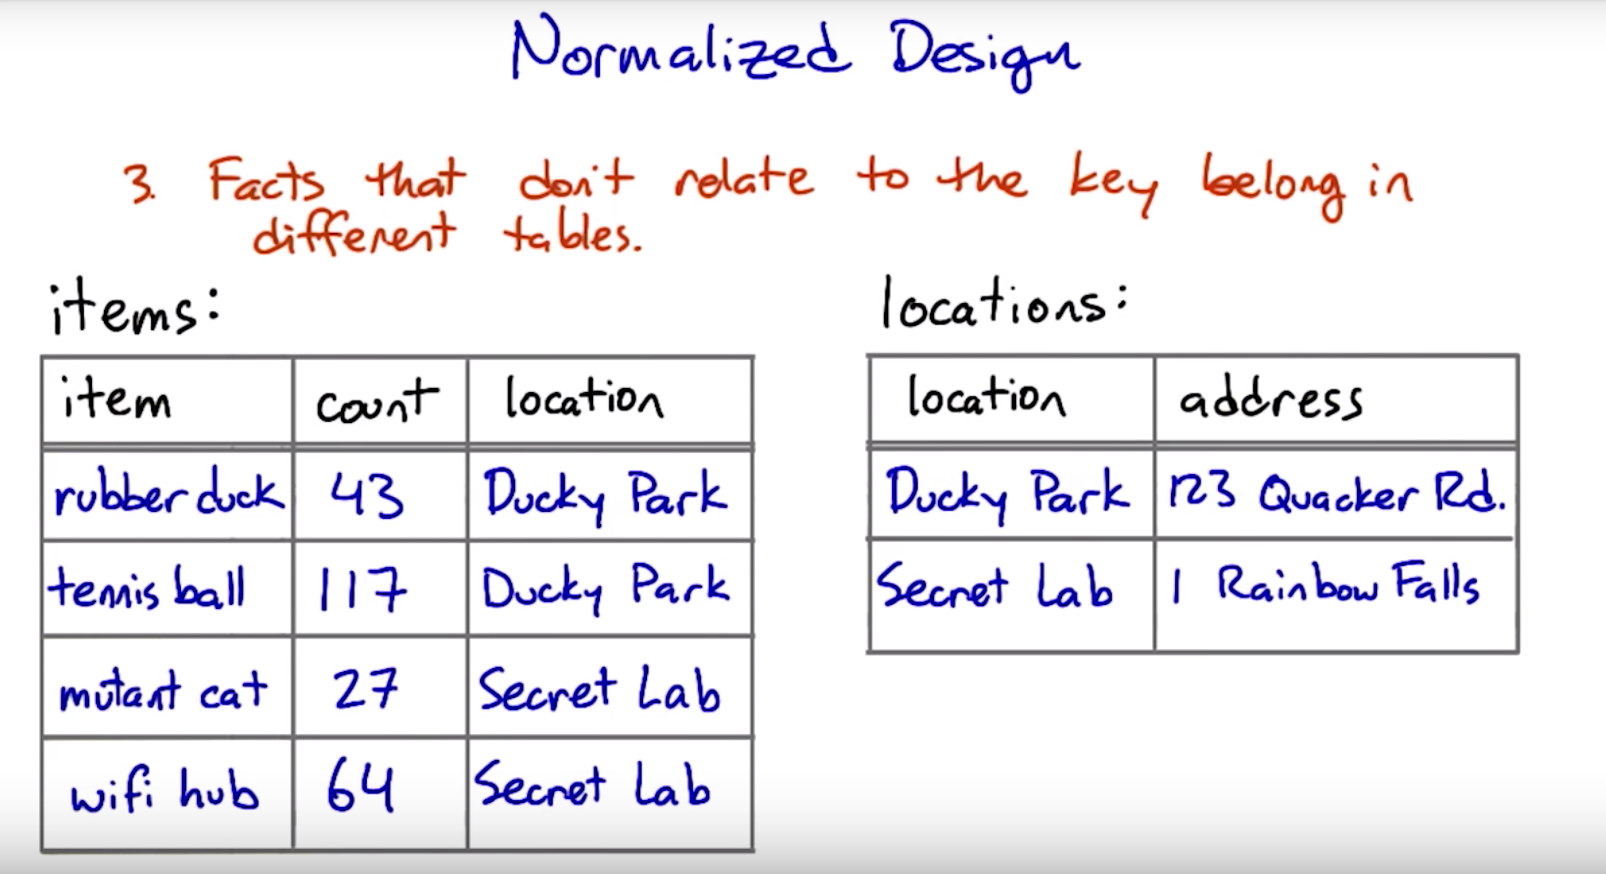 Normalized Design
3. Facts that don't relate to the key belong in
different tables.
items:
item count location
rubber duck 43 Ducky Park
tennis ball 117 Ducky Park
mutant cat 27 Secret Lab
wifi hub 64 Secret Lab
locations:
location address
Ducky Park 123 Quacker Rd.
Secret Lab 1 Rainbow Falls